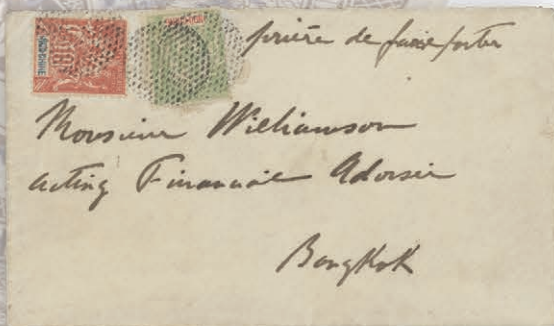 INDO-CHINE
prière de faire porter
Monsieur Williamson
acting Financial Adviser
Bangkok